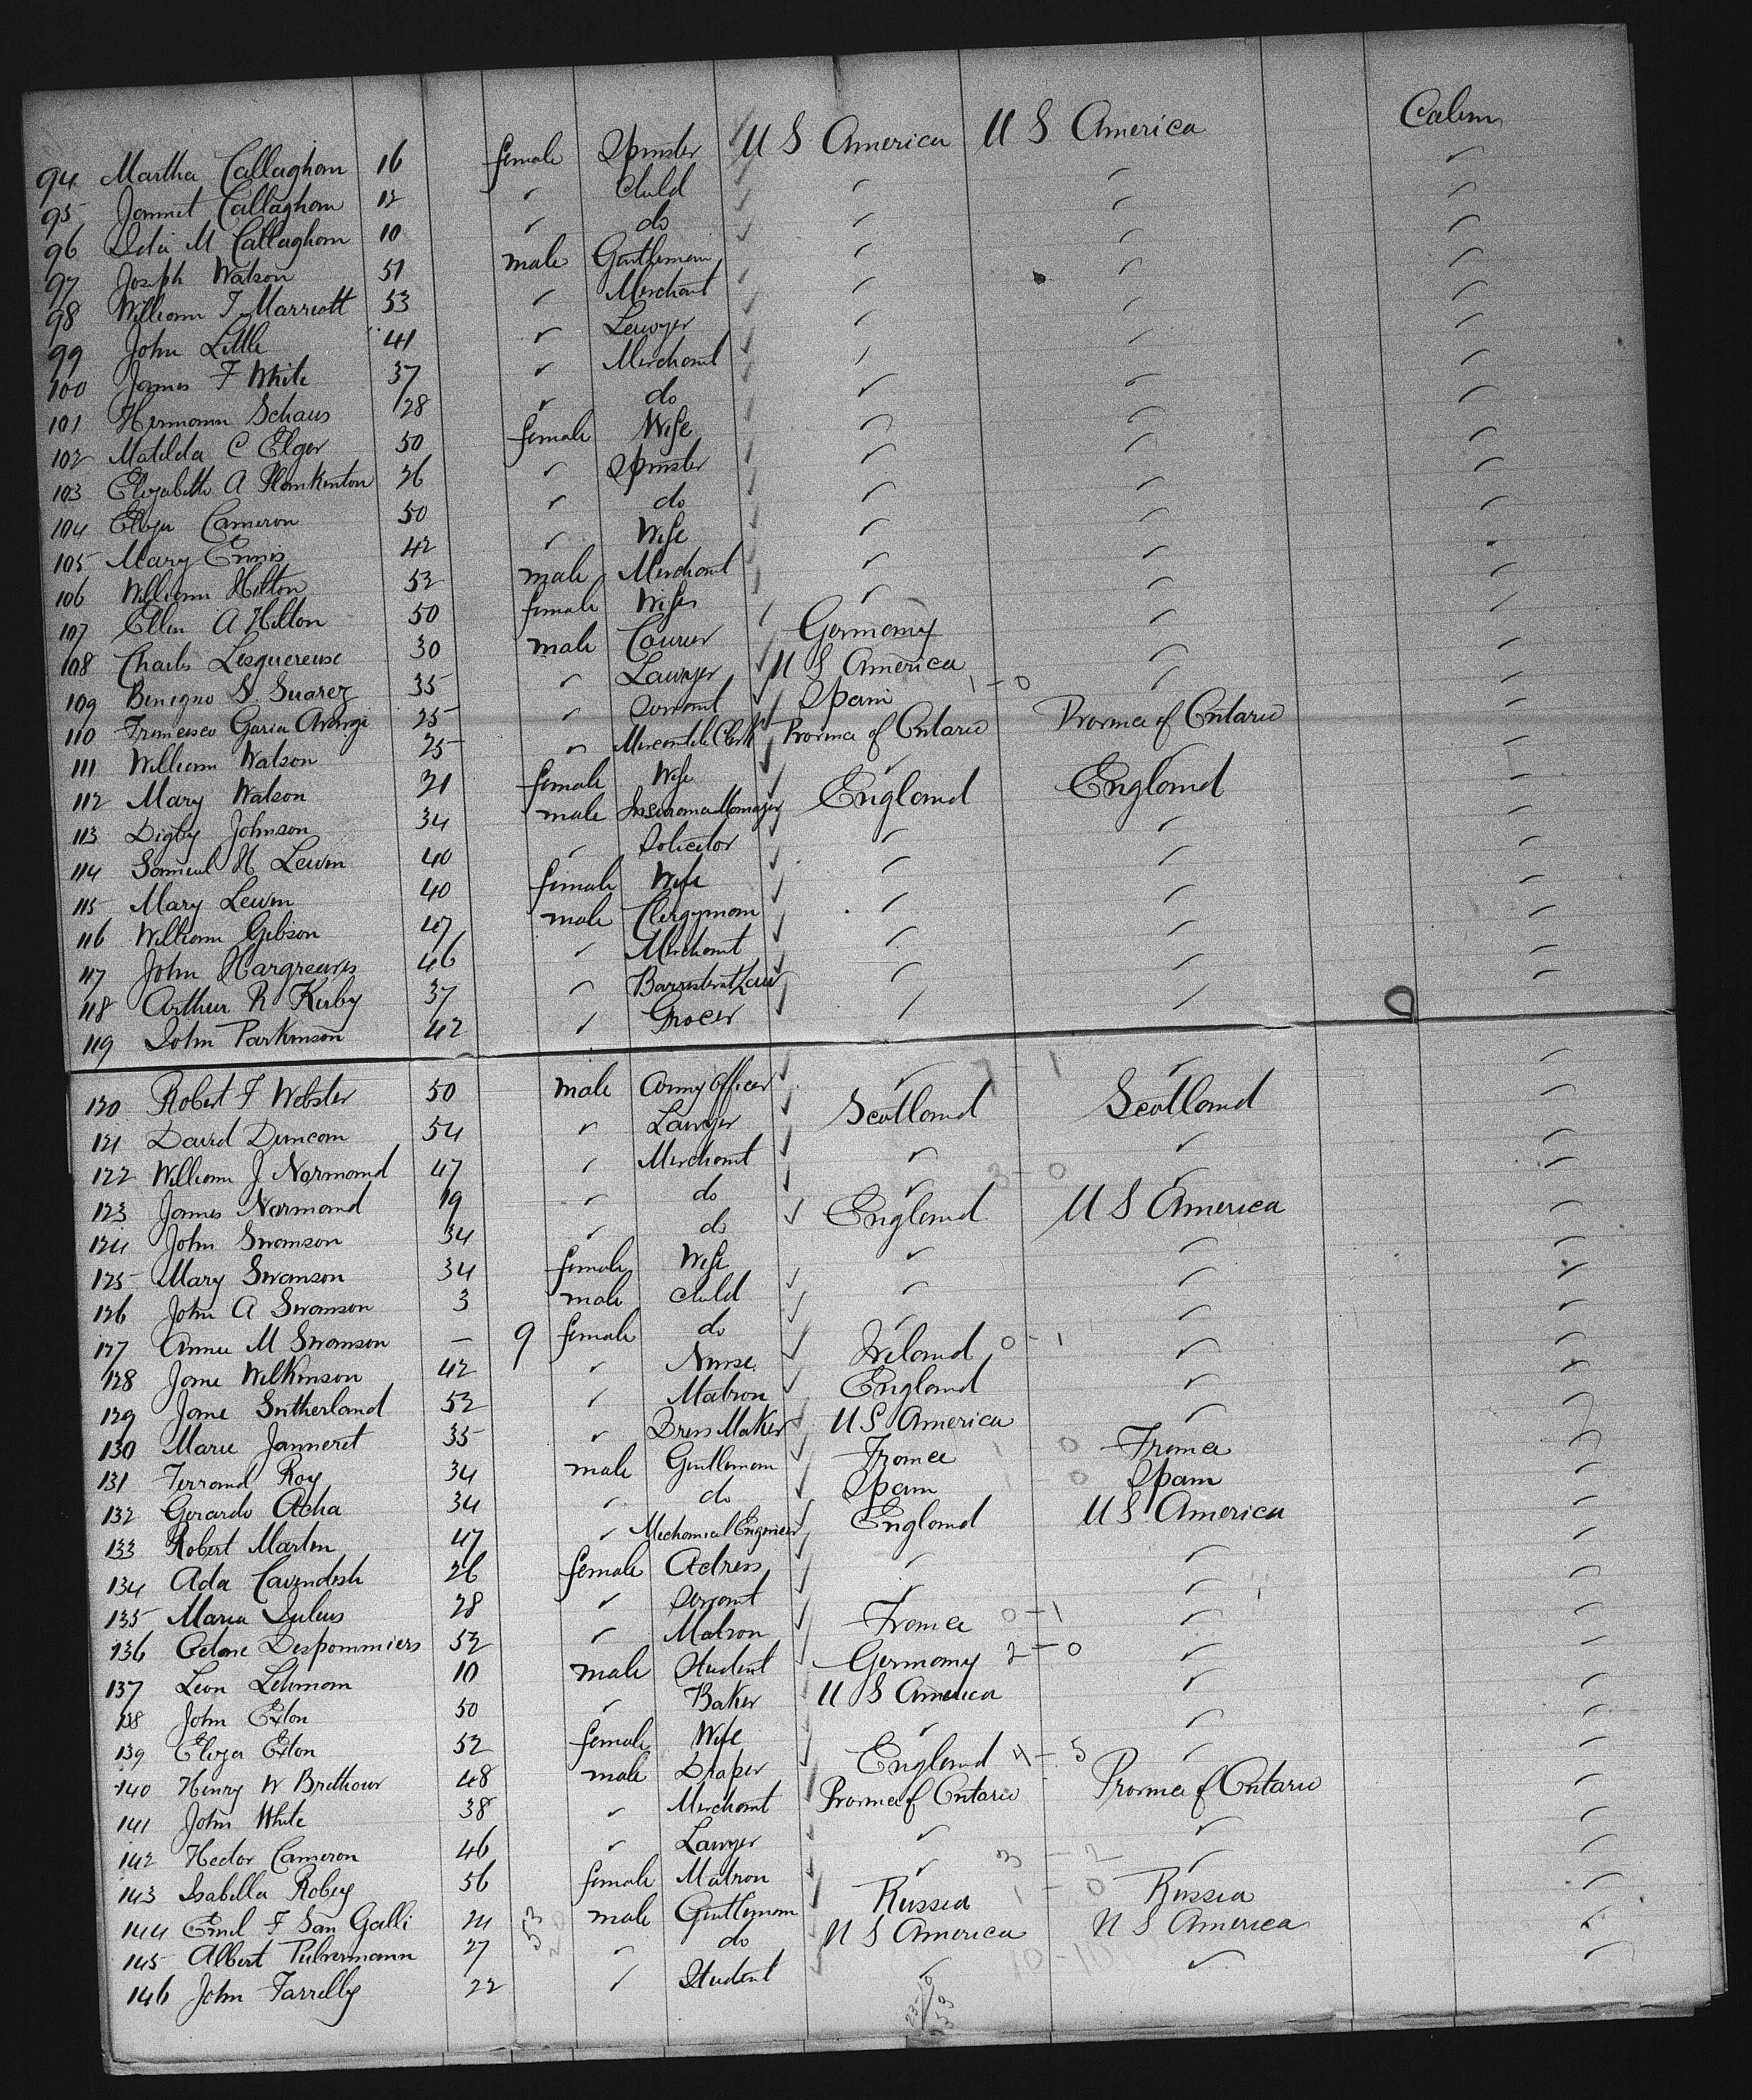 94 Martha Callaghan 16 female Spinster U S America U S America Cabin
95 Jannet Callaghan 12 " Child " " "
96 Delia M Callaghan 10 " do " " "
97 Joseph Watson 51 male Gentleman " " "
98 William T Marriott 53 " Merchant " " "
99 John Little 41 " Lawyer " " "
100 James F White 37 " Merchant " " "
101 Hermann Schaus 28 " do " " "
102 Matilda C Elger 50 female Wife " " "
103 Elizabeth A Plankenton 26 " Spinster " " "
104 Eliza Cameron 50 " do " " "
105 Mary Ennis 42 " Wife " " "
106 William Hilton 52 male Merchant " " "
107 Ellen A Hilton 50 female Wife " " "
108 Charles Lesquereuse 30 male Courier Germany " "
109 Benigno S. Suarez 35 " Lawyer U S America " "
110 Francisco Garcia 25 " Servant Spain 1-0 " "
111 William Watson 25 " Mercantile Clerk Province of Ontario Province of Ontario "
112 Mary Watson 21 female Wife " " "
113 Digby Johnson 34 male Insurance Manager England England "
114 Samuel H Lewin 40 " Solicitor " " "
115 Mary Lewin 40 female Wife " " "
116 William Gibson 47 male Clergyman " " "
117 John Hargreaves 46 " Merchant " " "
118 Arthur R Kirby 37 " Barrister at Law " " "
119 John Parkinson 42 " Grocer " " "
120 Robert F Webster 50 male Army Officer " 7 - 1 " "
121 David Duncan 54 " Lawyer Scotland Scotland "
122 William J Normand 47 " Merchant " " "
123 James Normand 19 " do " 3-0 " "
124 John Swanson 34 " do England U S America "
125 Mary Swanson 34 female Wife " " "
126 John A Swanson 3 male Child " " "
127 Annie M Swanson - 9 female do " " "
128 Jane Wilkinson 42 " Nurse Ireland 0-1 " "
129 Jane Sutherland 52 " Matron England " "
130 Marie Janneret 35 " Dress Maker U S America " "
131 Ferrand Roy 34 male Gentleman France 1 0 France "
132 Gerardo Acha 34 " do Spain 1-0 Spain "
133 Robert Marten 47 " Mechanical Engineer England U S America "
134 Ada Cavendish 26 female Actress " " "
135 Maria 28 " Servant " " "
136 Despommiers 52 " Matron France 0-1 " "
137 Leon Lehmann 10 male Student Germany 2-0 " "
138 John Exton 50 " Baker U S America " "
139 Eliza Exton 52 female Wife " " "
140 Henry W Brethour 48 male Draper England 4-5 " "
141 John White 38 " Merchant Province of Ontario Province of Ontario "
142 Hector Cameron 46 " Lawyer " " "
143 Isabella Robey 56 female Matron " 3-2 " "
144 Emil F San Galli 24 53 male Gentleman Russia 1-0 Russia "
145 Albert Pulvermann 27 20 " do U S America U S America "
146 John Farrelly 22 " Student " 10-10 " "